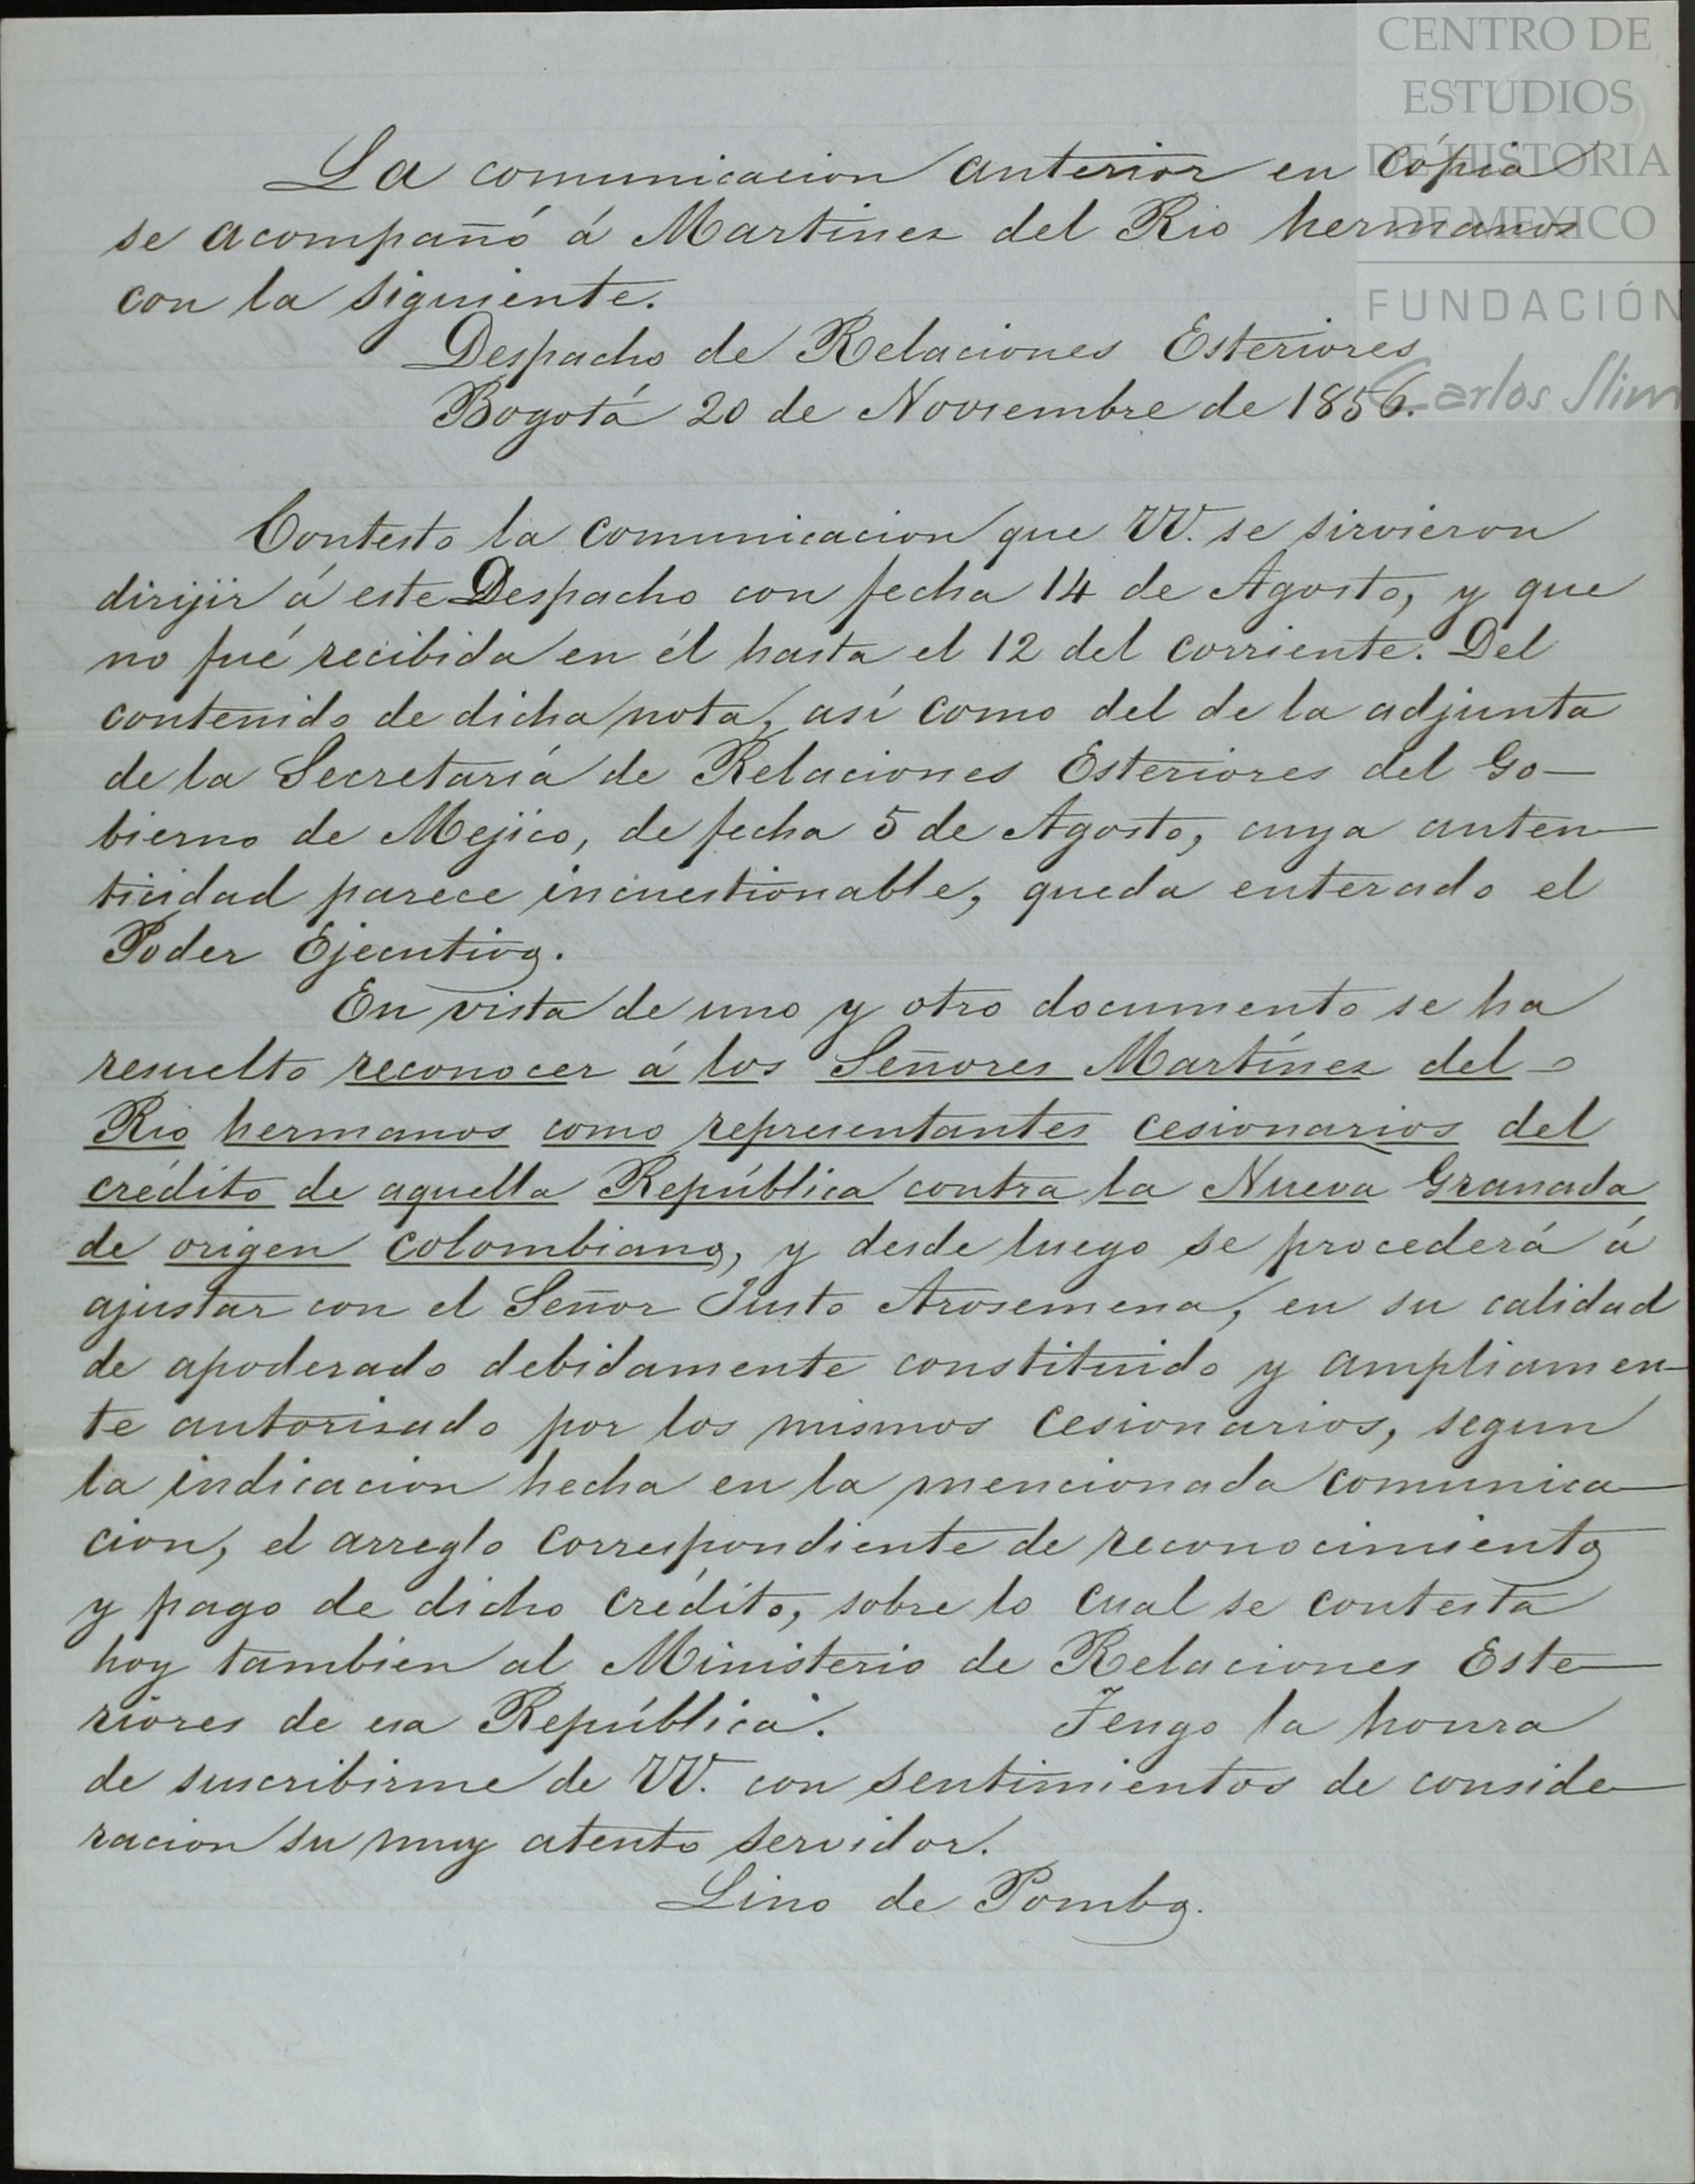 CENTRO DE
ESTUDIOS
DE HISTORIA
DE MEXICO
FUNDACIÓN
Carlos Slim
La comunicacion anterior en cópia
se acompañó á Martinez del Rio hermanos
con la siguiente.
Despacho de Relaciones Esteriores
Bogotá 20 de Noviembre de 1856.
Contesto la comunicacion que VV. se sirvieron
dirijir á este Despacho con fecha 14 de Agosto, y que
no fué recibida en él hasta el 12 del corriente. Del
contenido de dicha nota, así como del de la adjunta
de la Secretaría de Relaciones Esteriores del Go-
bierno de Mejico, de fecha 5 de Agosto, cuya auten-
ticidad parece incuestionable, queda enterado el
Poder Ejecutivo.
En vista de uno y otro documento se ha
resuelto reconocer á los Señores Martínez del
Rio hermanos como representantes cesionarios del
crédito de aquella República contra la Nueva Granada
de origen colombiano, y desde luego se procederá á
ajustar con el Señor Justo Arosemena, en su calidad
de apoderado debidamente constituido y ampliamen-
te autorizado por los mismos cesionarios, segun
la indicacion hecha en la mencionada comunica-
cion, el arreglo correspondiente de reconocimiento
y pago de dicho crédito, sobre lo cual se contesta
hoy tambien al Ministerio de Relaciones Este-
riores de esa República. Tengo la honra
de suscribirme de VV. con sentimientos de conside-
racion su muy atento servidor.
Lino de Pombo.